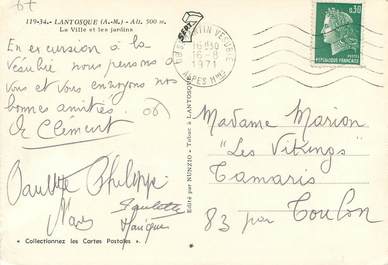 119-34. - LANTOSQUE (A.-M.) - Alt. 500 m.
La Ville et les jardins
En excursion à la
Vésubie nous pensons à
vous et vous envoyons nos
bonnes amitiés.
Clément
Paulette Philippe
Paulette
Edité par NUNZIO - Tabac à LANTOSQUE
« Collectionnez les Cartes Postales »
MARTIN VESUBIE
16H30
16-8
1971
ALPES Mmes
0,30
REPUBLIQUE FRANCAISE
Madame Marion
"Les Vikings"
Tamaris
83 par Toulon